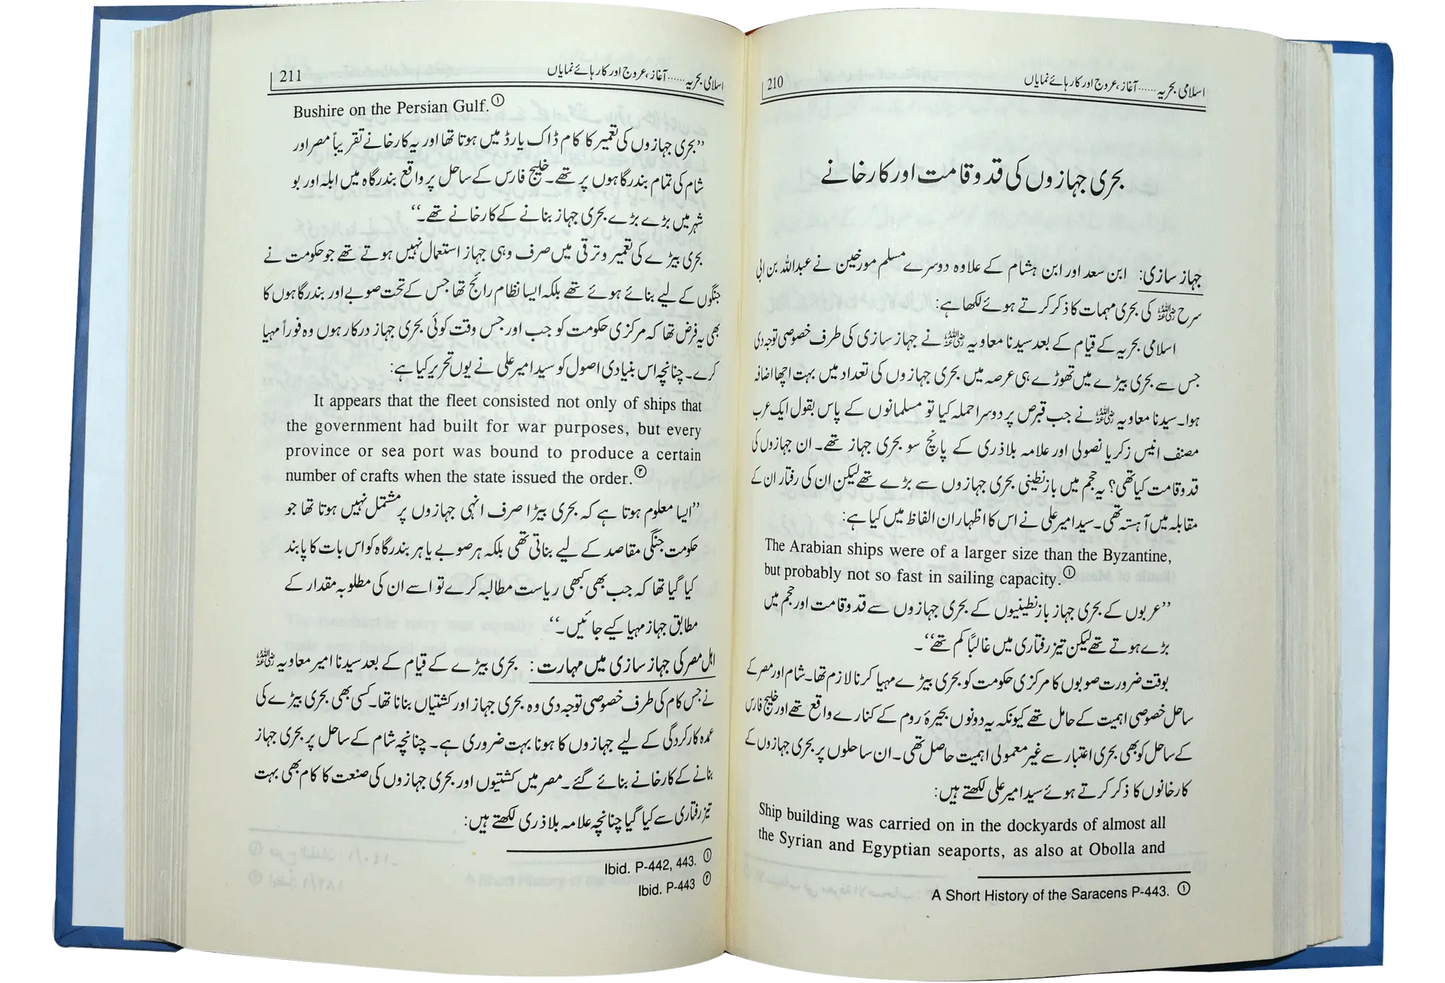 210
اسلامی بحریہ......آغاز، عروج اور کارہائے نمایاں
بحری جہازوں کی قدوقامت اور کارخانے
جہاز سازی: ابن سعد اور ابن ہشام کے علاوہ دوسرے مسلم مورخین نے عبداللہ بن ابی
سرح ؓ کی بحری مہمات کا ذکر کرتے ہوئے لکھا ہے:
اسلامی بحریہ کے قیام کے بعد سیدنا معاویہ ؓ نے جہاز سازی کی طرف خصوصی توجہ دی
جس سے بحری بیڑے میں تھوڑے ہی عرصہ میں بحری جہازوں کی تعداد میں بہت اچھا اضافہ
ہوا۔ سیدنا معاویہ ؓ نے جب قبرص پر دوسرا حملہ کیا تو مسلمانوں کے پاس بقول ایک عرب
مصنف انیس زکریا نصولی اور علامہ بلاذری کے پانچ سو بحری جہاز تھے۔ ان جہازوں کی
قدوقامت کیا تھی؟ یہ حجم میں بازنطینی بحری جہازوں سے بڑے تھے لیکن ان کی رفتار ان کے
مقابلہ میں آہستہ تھی۔ سید امیر علی نے اس کا اظہار ان الفاظ میں کیا ہے:
The Arabian ships were of a larger size than the Byzantine,
but probably not so fast in sailing capacity.①
’’عربوں کے بحری جہاز بازنطینیوں کے بحری جہازوں سے قدوقامت اور حجم میں
بڑے ہوتے تھے لیکن تیز رفتاری میں غالباً کم تھے‘‘۔
بوقت ضرورت صوبوں کا مرکزی حکومت کو بحری بیڑے مہیا کرنا لازم تھا۔ شام اور مصر کے
ساحل خصوصی اہمیت کے حامل تھے کیونکہ یہ دونوں بحیرۂ روم کے کنارے واقع تھے اور خلیج فارس
کے ساحل کو بھی بحری اعتبار سے غیر معمولی اہمیت حاصل تھی۔ ان ساحلوں پر بحری جہازوں کے
کارخانوں کا ذکر کرتے ہوئے سید امیر علی لکھتے ہیں:
Ship building was carried on in the dockyards of almost all
the Syrian and Egyptian seaports, as also at Obolla and
A Short History of the Saracens P-443. ①
211
اسلامی بحریہ......آغاز، عروج اور کارہائے نمایاں
Bushire on the Persian Gulf.①
’’بحری جہازوں کی تعمیر کا کام ڈاک یارڈ میں ہوتا تھا اور یہ کارخانے تقریباً مصر اور
شام کی تمام بندرگاہوں پر تھے۔ خلیج فارس کے ساحل پر واقع بندرگاہ میں ابلہ اور بو
شہر میں بڑے بڑے بحری جہاز بنانے کے کارخانے تھے۔‘‘
بحری بیڑے کی تعمیر و ترقی میں صرف وہی جہاز استعمال نہیں ہوتے تھے جو حکومت نے
جنگوں کے لیے بنائے ہوئے تھے بلکہ ایسا نظام رائج تھا جس کے تحت صوبے اور بندرگاہوں کا
بھی یہ فرض تھا کہ مرکزی حکومت کو جب اور جس وقت کوئی بحری جہاز درکار ہوں وہ فوراً مہیا
کرے۔ چنانچہ اس بنیادی اصول کو سید امیر علی نے یوں تحریر کیا ہے:
It appears that the fleet consisted not only of ships that
the government had built for war purposes, but every
province or sea port was bound to produce a certain
number of crafts when the state issued the order.②
’’ایسا معلوم ہوتا ہے کہ بحری بیڑا صرف انہی جہازوں پر مشتمل نہیں ہوتا تھا جو
حکومت جنگی مقاصد کے لیے بناتی تھی بلکہ ہر صوبے یا ہر بندرگاہ کو اس بات کا پابند
کیا گیا تھا کہ جب بھی کبھی ریاست مطالبہ کرے تو اسے ان کی مطلوبہ مقدار کے
مطابق جہاز مہیا کیے جائیں۔‘‘
اہل مصر کی جہاز سازی میں مہارت: بحری بیڑے کے قیام کے بعد سیدنا امیر معاویہ ؓ
نے جس کام کی طرف خصوصی توجہ دی وہ بحری جہاز اور کشتیاں بنانا تھا۔ کسی بھی بحری بیڑے کی
عمدہ کارکردگی کے لیے جہازوں کا ہونا بہت ضروری ہے۔ چنانچہ شام کے ساحل پر بحری جہاز
بنانے کے کارخانے بنائے گئے۔ مصر میں کشتیوں اور بحری جہازوں کی صنعت کا کام بھی بہت
تیز رفتاری سے کیا گیا چنانچہ علامہ بلاذری لکھتے ہیں:
Ibid. P-442, 443. ①
Ibid. P-443 ②